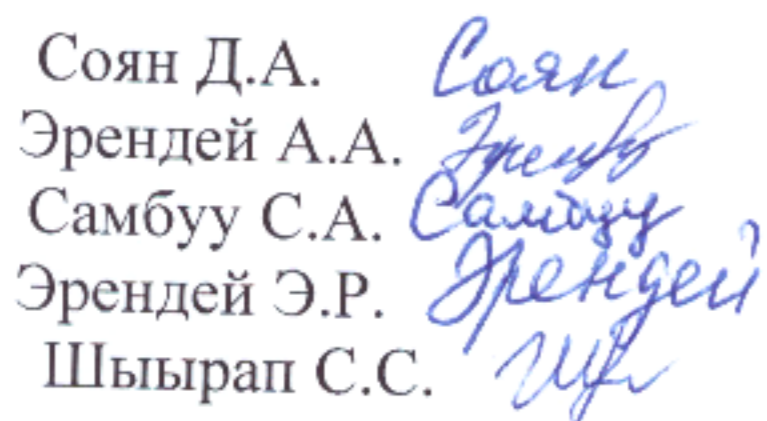 Соян Д.А. Соян
Эрендей А.А.
Самбуу С.А. Самбуу
Эрендей Э.Р. Эрендей
Шыырап С.С.